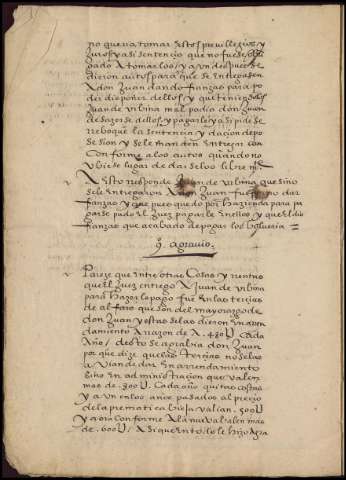 no queria tomar estos previllegios y
Juros y asi sentencio que no fuese obli
gado a tomarlos y a un despues se
dieron autos para que se entregasen
A don Juan dando fianças para po
der disponer dellos y que teniendolos
Juan de vibina mal podia don Juan
desazerse dellos y pagarle y asi pide se
reboque la sentencia y dacion de po
sesion y se le manden entregar con
conforme a los autos quando no
Ubiese lugar de darse los libre mte
A esto responde Juan de vibina que si no
se le entregaron A don Juan fue por no dar
fianzas y que pues quedo por hazienda para pa
garse pudo el Juez pagarle en ellos y que el dio
fianzas que acabado de pagar los bolueria
9. agravio.
Pareze que entre otras Cosas y rentas
que el Juez entrego A Juan de vibina
para hazer lo pago fue en las tercias
de alfaro que son del mayorazgo de
don Juan y estas se las dieron en arren
damiento A razon de A. 430U. Cada
Año / desto se agrabia don Juan
por que dize que las tercias no se las
avian de dar en arrendamiento
sino en administracion que valen
mas de .800U. Cada año quitas costas
y a un en los años pasados al precio
de la prematica bieja valian .500U
y aora conforme A la nueva valen mas
de .600U. A siquento de le hizo agra